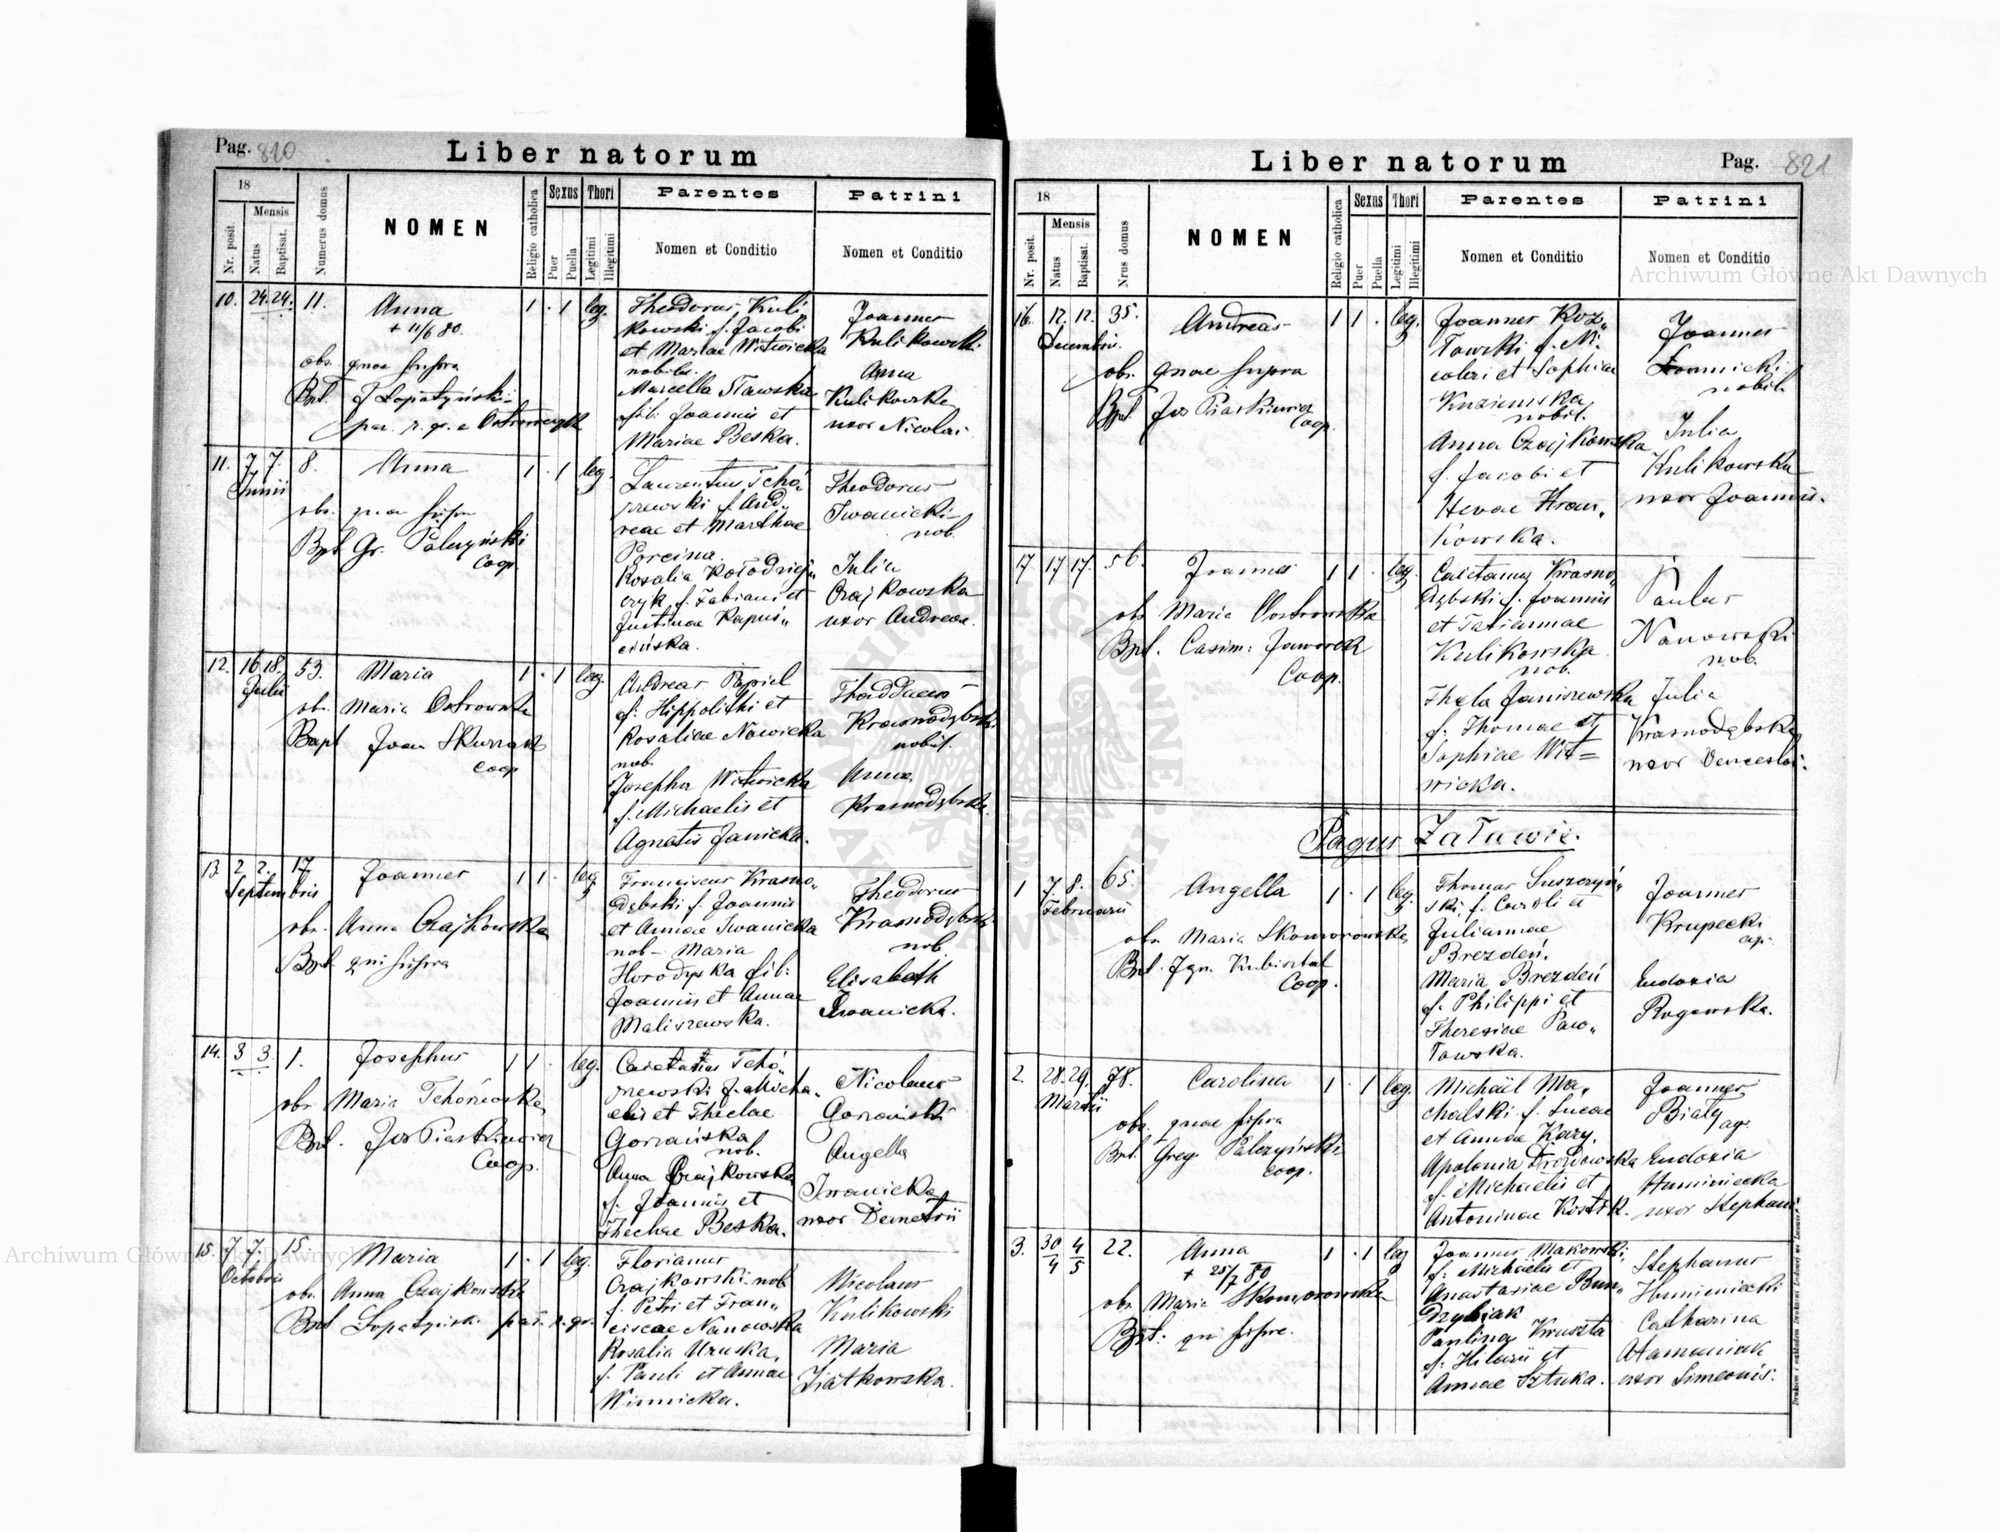 Pag. 820
Liber natorum
18
Mensis
Nr. posit.
Natus
Baptisat.
Numerus domus
NOMEN
Religio catholica
Sexus
Puer
Puella
Thori
Legitimi
Illegitimi
Parentes
Nomen et Conditio
Patrini
Nomen et Conditio
10. 24. 24. 11. Anna 1 · 1 leg.
+ 11/6 80.
obs. quae supra
Bpt. J Łopatyński
par. r. g. a
Theodorus Kuli
kowski f. Jacobi
et Mariae Witwicka
nobiles.
Marcella Sławska
fil. Joannis et
Mariae Beska.
Joannes
Kulikowski
Anna
Kulikowska
uxor Nicolai
11. 7 7. 8. Anna 1 · 1 leg.
Junii
obs. quae supra
Bpt Gr. Palczyński
Coop.
Laurentius Tchó
rzewski f. And
reae et Marthae
Porcina.
Rosalia Kołodziej
czyk f. Fabiani et
Justinae Kapuś„
cińska.
Theodorus
Iwanicki
nob.
Julia
Czajkowska
uxor Andreae.
12. 16 18. 53. Maria 1 · 1 leg.
Julii
obs. Maria Ostrowska
Bapt Joan Skurzak
coop
Andreas Papiel
f. Hippolithi et
Rosaliae Nowicka
nob.
Josepha Witwicka
f. Michaelis et
Agnetis Janicka.
Thaddaeus
Krasnodębski
nobil.
Anna
Krasnodębska
13. 2 2. 17 Joannes 1 1 · leg
Septembris
obs. Anna Czajkowska
Bpt. qui supra
Franciscus Krasno„
dębski f. Joannis
et Annae Iwanicka
nob- Maria
Horodyska fil:
Joannis et Annae
Maliszewska.
Theodorus
Krasnodębski
nob
Elisabeth
Iwanicka.
14. 3 3. 1. Josephus 1 1 · leg.
obs. Maria Tchórzewska
Bpt. Jos Piaskiewicz
Coop.
Caietanus Tchó„
rzewski f. Micha„
elis et Theclae
Gorzańska
nob.
Anna Czajkowska
f. Joannis et
Theclae Beska.
Nicolaus
Angella
Iwanicka
uxor Demetrii
15. 7 7. 15. Maria 1 · 1 leg.
Octobris
obs. Anna Czajkowska
Bpt Łopatyński par. r. gr.
Florianus
Czajkowski nob
f. Petri et Fran„
ciscae Nanowska
Rosalia Uruska,
f. Pauli et Annae
Winnicka.
Nicolaus
Kulikowski
Maria
Ziatkowska.
Liber natorum
Pag. 821
18
Mensis
Nr. posit.
Natus
Baptisat.
Nrus domus
NOMEN
Religio catholica
Sexus
Puer
Puella
Thori
Legitimi
Illegitimi
Parentes
Nomen et Conditio
Patrini
Nomen et Conditio
16. 12. 12. 35. Andreas 1 1 · leg.
Decembris.
obs. quae supra
Bpt Jos Piaskiewicz
Coop.
Joannes Koz„
łowski f. Ni„
colai et Sophiae
nobil.
Anna Czajkowska
f. Jacobi et
Hevae Kran„
kowska.
Joannes
nobil.
Julia
Kulikowska
uxor Joannis.
17. 17 17. 56. Joannes 1 1 · leg
obs Maria Ostrowska
Bpt. Casim: Jaworek
Coop.
Caietanus Krasno„
dębski f. Joannis
et Tatiannae
Kulikowska
nob.
Thecla Janiszewska
f. Thomae et
Sophiae Wit=
wicka.
Paulus
Nanowski
nob.
Julia
Krasnodębska
uxor Venceslai.
Pagus Załawie.
1 7. 8. 65. Angella 1 · 1 leg.
Februarii
obs. Maria Skomorowska
Bpt. Ign. Kubisztal
Coop.
Thomas Suszczyń„
ski f. Caroli et
Juliannae
Brezdeń.
Maria Brezdeń
f. Philippi et
Theresiae Paw„
łowska.
Joannes
Krupecki
agr.
Eudoxia
Rogowska.
2. 28. 29. 78. Carolina 1 · 1 leg.
Martii
obs. quae supra
Bpt. Greg Palczyński
coop.
Michaël Ma„
chalski f. Lucae
et Annae Kary.
Apolonia
f. Michaelis et
Antoninae Kostek.
Joannes
Biały agr.
Eudoxia
Humeniecka
uxor Stephani
3. 30/4 4/5 22. Anna 1 · 1 leg
+ 25/7 80
obs. Maria Skomorowska
Bpt. qui supra.
Joannes Makowski,
f. Michaelis et
Anastasiae Bun„
dzybiak
Paulina Kruszta
f. Hilarii et
Annae Sztuka.
Stephanus
Humieniecki
Catharina
Atamaniuk
uxor Simeonis.
Archiwum Główne Akt Dawnych
Archiwum Główne Akt Dawnych